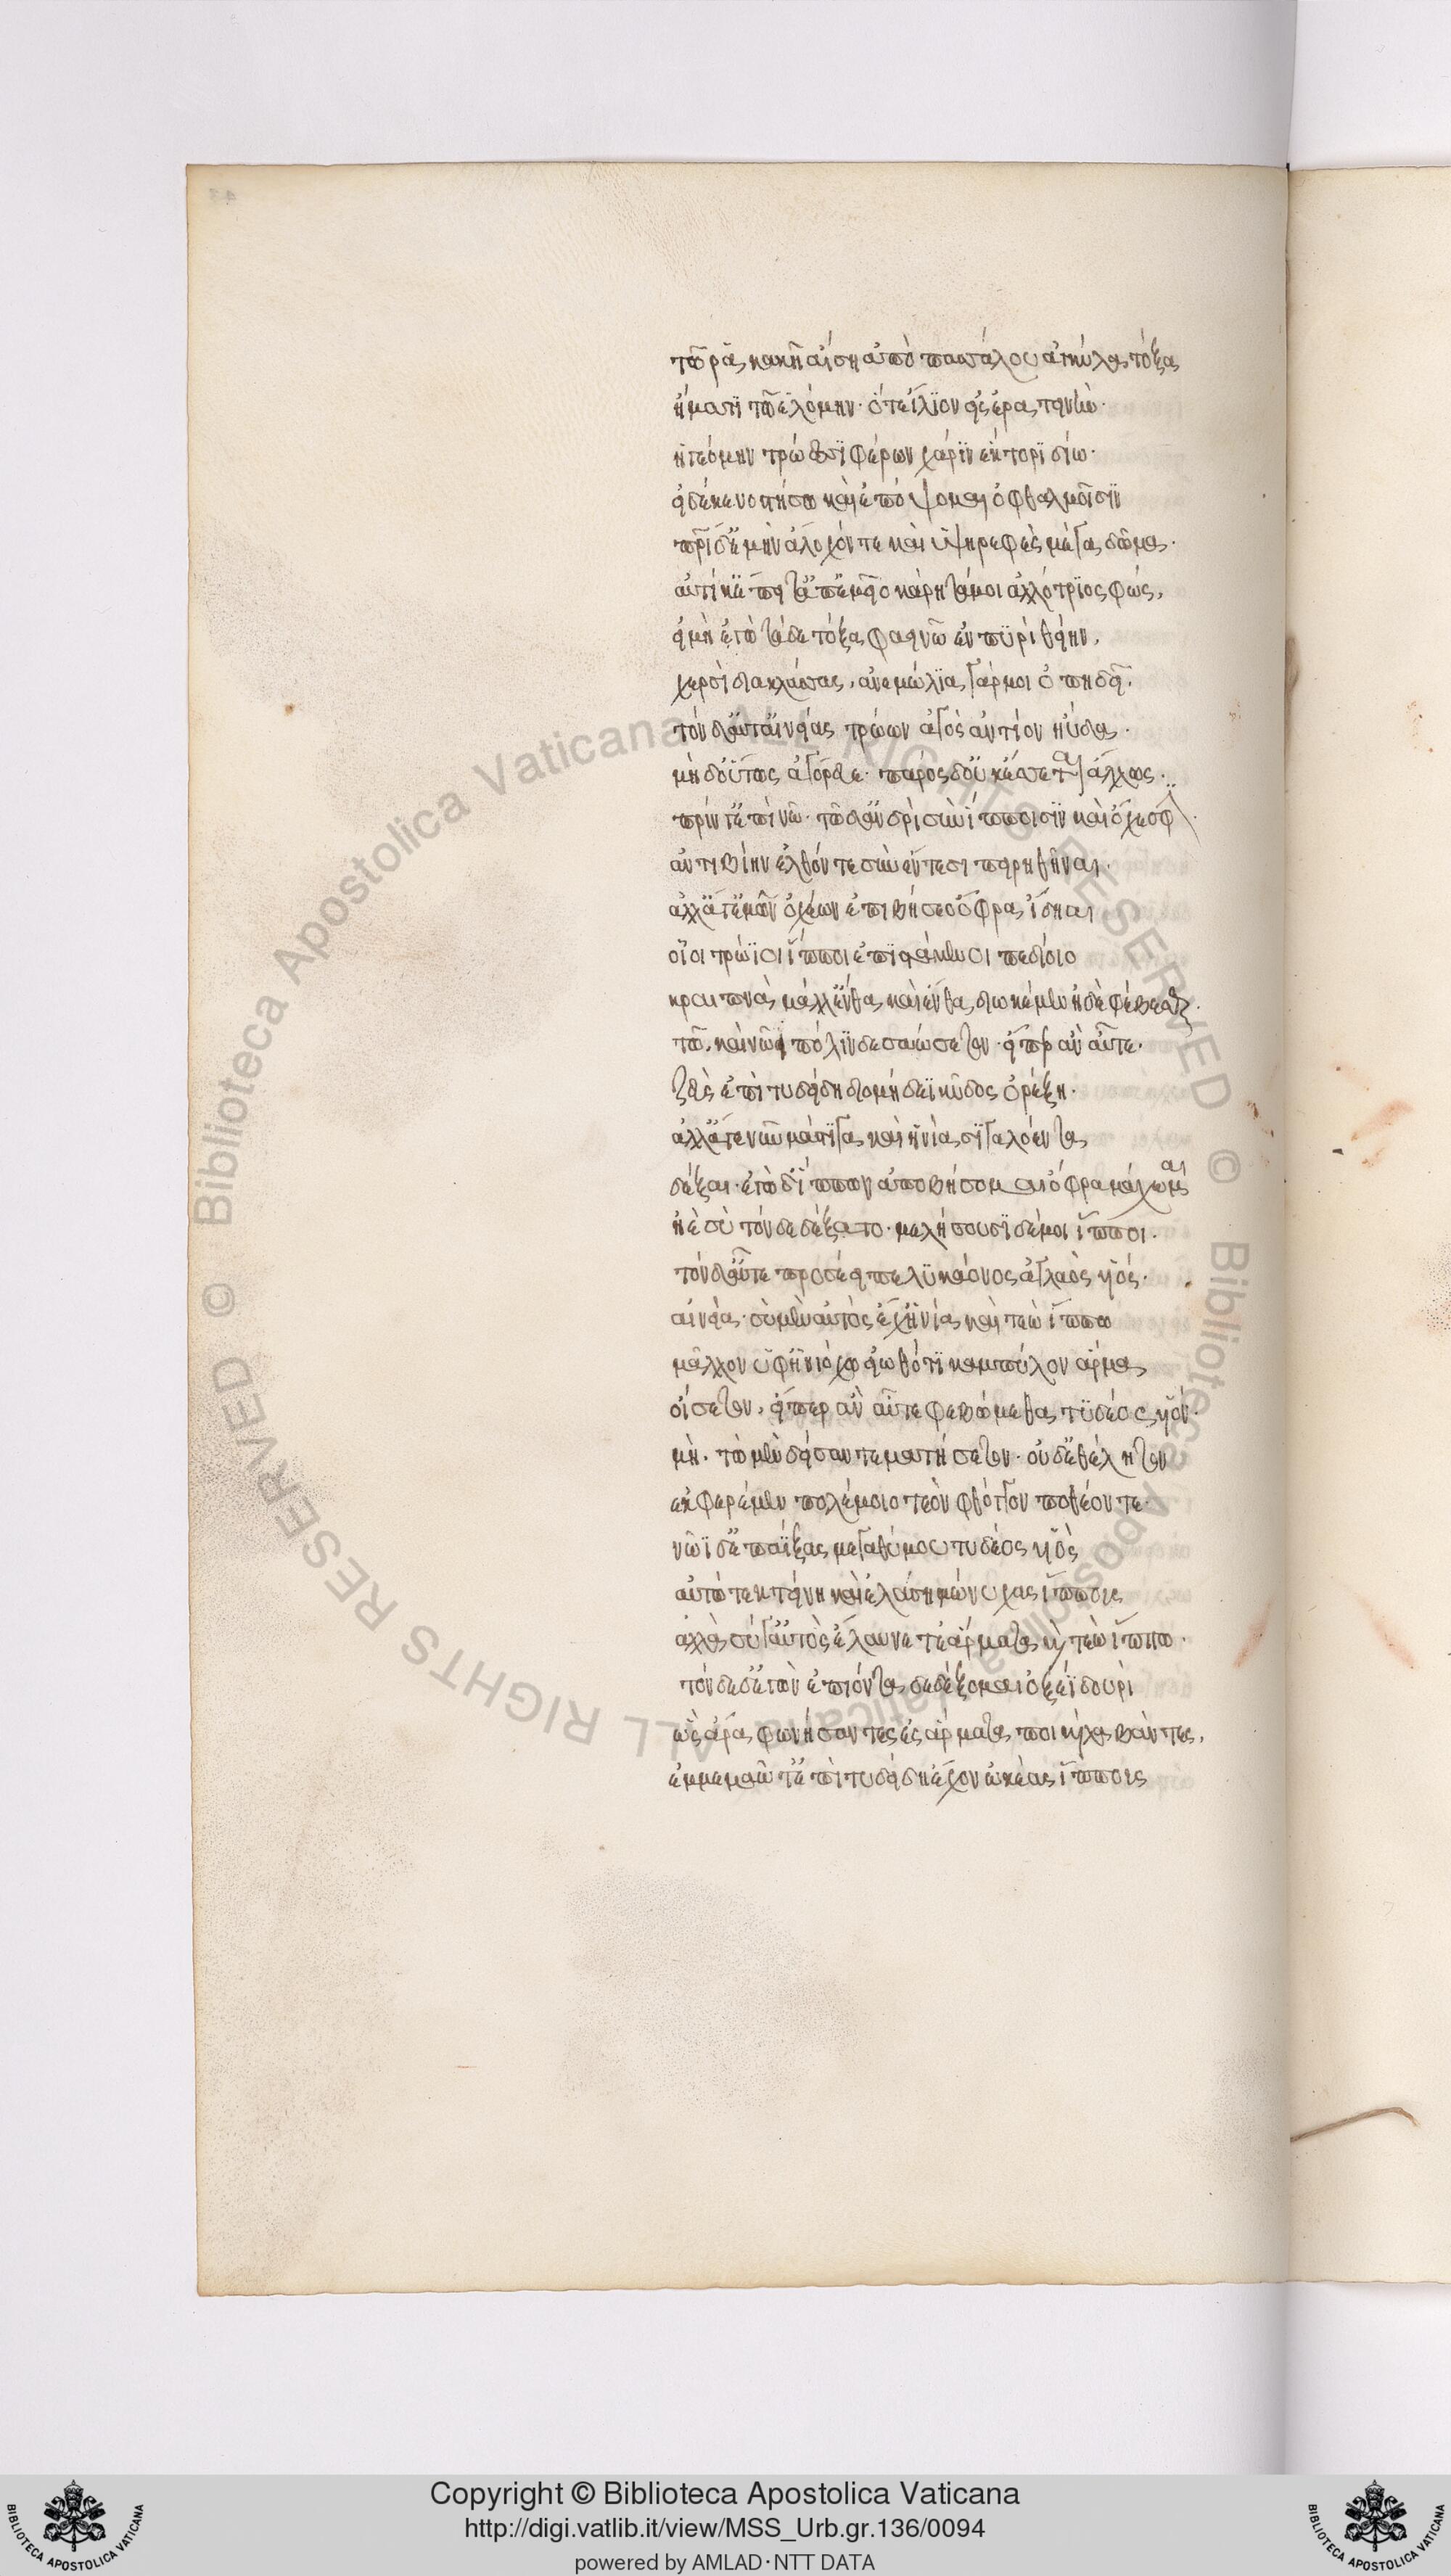 τῶ ῥα κακῆ αἴση ἀπὸ πασσάλου ἀγκύλα τόξα
ἤματι τῶ ἑλόμην· ὅτε ἴλιον εἰς ἐρατεινὴν·
ἡγεόμην τρώεσσι φέρων χάριν ἕκτορι δίω·
εἰ δέ κε νοστήσω καὶ ἐπόψομαι ὀφθαλμοῖσιν
πατρίδ' ἐμὴν ἄλοχόν τε καὶ ὑψηρεφὲς μέγα δῶμα·
αὐτίκ' ἔπειτ' ἀπ' ἐμεῖο κάρη τάμοι ἀλλότριος φώς,
εἰ μὴ ἐγὼ τάδε τόξα φαεινῶ ἐν πυρὶ θείην,
χερσὶ διακλάσσας, ἀνεμώλια γάρ μοι ὀπηδεῖ.
τὸν δ' αὖτ' αἰνείας τρώων ἀγὸς ἀντίον ηὔδα·
μὴ δ' οὕτως ἀγόρευε· πάρος δ' οὐκ ἔσσεται ἄλλως·
πρίν γ' ἐπὶ νὼ· τῶδ' ἀνδρὶ σὺν ἵπποισιν καὶ ὄχεσφιν·
ἀντιβίην ἐλθόντε σὺν ἔντεσι πειρηθῆναι·
ἀλλ' ἄγ' ἐμῶν ὀχέων ἐπιβήσεο ὄφρα ἴδηαι
οἷοι τρώϊοι ἵπποι ἐπιστάμενοι πεδίοιο
κραιπνὰ μάλ' ἔνθα καὶ ἔνθα διωκέμεν ἠδὲ φέβεσθαι·
τὼ καὶ νῶϊ πόλινδε σαώσετον· εἴπερ ἂν αὖτε·
ζεὺς ἐπὶ τυδείδη διομήδεϊ κῦδος ὀρέξη·
ἀλλ' ἄγε νῦν μάστιγα καὶ ἡνία σιγαλόεντα
δέξαι· ἐγὼ δ' ἵππων ἀποβήσομαι ὄφρα μάχωμαι
ἠὲ σὺ τόνδε δέξατο· μελήσουσι δ' ἐμοὶ ἵπποι·
τὸν δ' αὖτε προσέειπε λυκάονος ἀγλαὸς υἱός·
αἰνεία· σὺ μὲν αὐτὸς ἔχ' ἡνία καὶ τεὼ ἵππω
μᾶλλον ὑφ' ἡνιόχω εἰωθότι καμπύλον ἅρμα
οἴσετον, εἴπερ ἂν αὖτε φεβώμεθα τυδέος υἱόν·
μὴ· τὼ μὲν δείσαντε ματήσετον· οὐδ' ἐθέλητον
ἐκφερέμεν πολέμοιο τεὸν φθόγγον ποθέοντε·
νῶϊ δ' ἐπαΐξας μεγαθύμου τυδέος υἱὸς
αὐτώ τε κτείνη καὶ ἐλάσση μώνυχας ἵππους
ἀλλὰ σύ γ' αὐτὸς ἔλαυνε τε' ἅρματα καὶ τεὼ ἵππω·
τόνδε δ' ἐγὼν ἐπιόντα δεδέξομαι ὀξέϊ δουρί
ὣς ἄρα φωνήσαντες ἐς ἅρματα ποικίλα βάντες,
ἐμμεμαῶτ' ἐπὶ τυδείδη ἔχον ὠκέας ἵππους
Copyright © Biblioteca Apostolica Vaticana
http://digi.vatlib.it/view/MSS_Urb.gr.136/0094
powered by AMLAD·NTT DATA